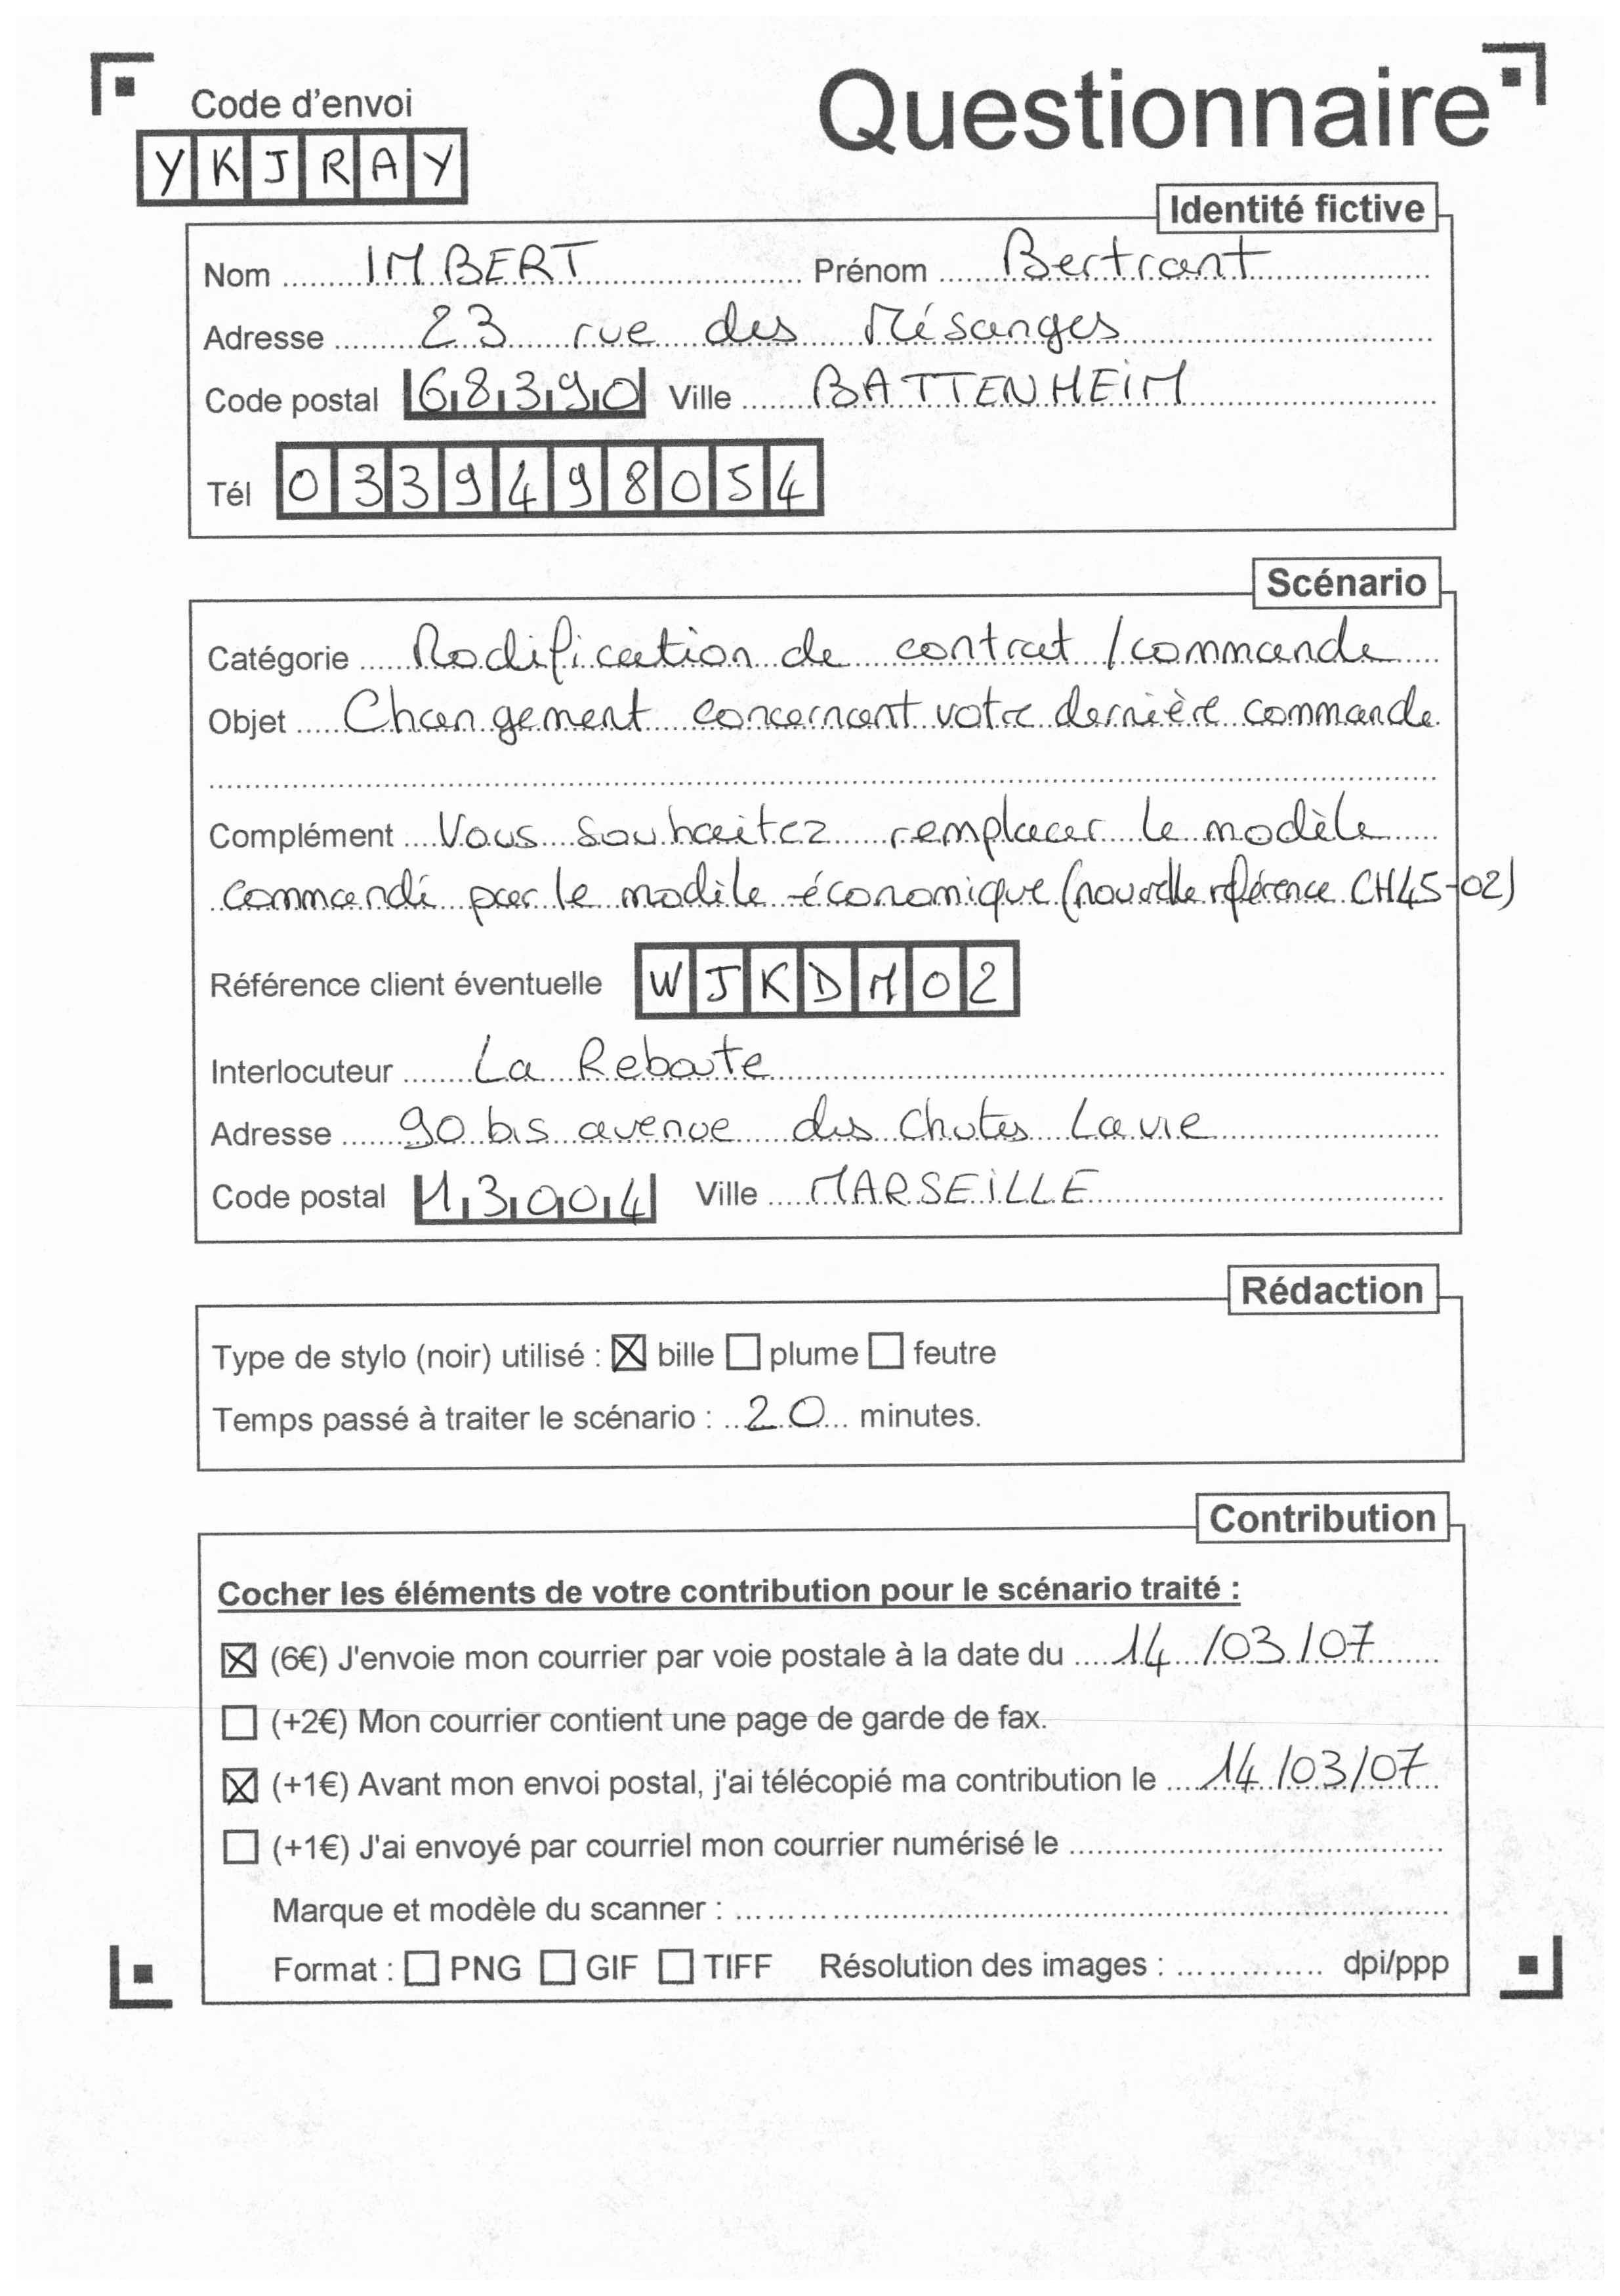 Code d'envoi
Questionnaire
YKJRAY
Identité fictive
Nom ... IMBERT ... Prénom ... Bertrant
Adresse ... 23 rue des Mésanges
Code postal 68390 Ville ... BATTENHEIM
Tél 0339498054
Scénario
Catégorie ... Modification de contrat / commande
Objet ... Changement concernant votre dernière commande
Complément ... Vous souhaitez remplacer le modèle
commandé par le modèle économique (nouvelle référence CH45-02)
Référence client éventuelle WJKDM02
Interlocuteur ... La Reboute
Adresse ... 90 bis avenue des Chutes Lavie
Code postal 13004 Ville ... MARSEILLE
Rédaction
Type de stylo (noir) utilisé : ☒ bille ☐ plume ☐ feutre
Temps passé à traiter le scénario : 20 minutes.
Contribution
Cocher les éléments de votre contribution pour le scénario traité :
☒ (6€) J'envoie mon courrier par voie postale à la date du ... 14/03/07
☐ (+2€) Mon courrier contient une page de garde de fax.
☒ (+1€) Avant mon envoi postal, j'ai télécopié ma contribution le ... 14/03/07
☐ (+1€) J'ai envoyé par courriel mon courrier numérisé le ...
Marque et modèle du scanner : ...
Format : ☐ PNG ☐ GIF ☐ TIFF Résolution des images : ... dpi/ppp